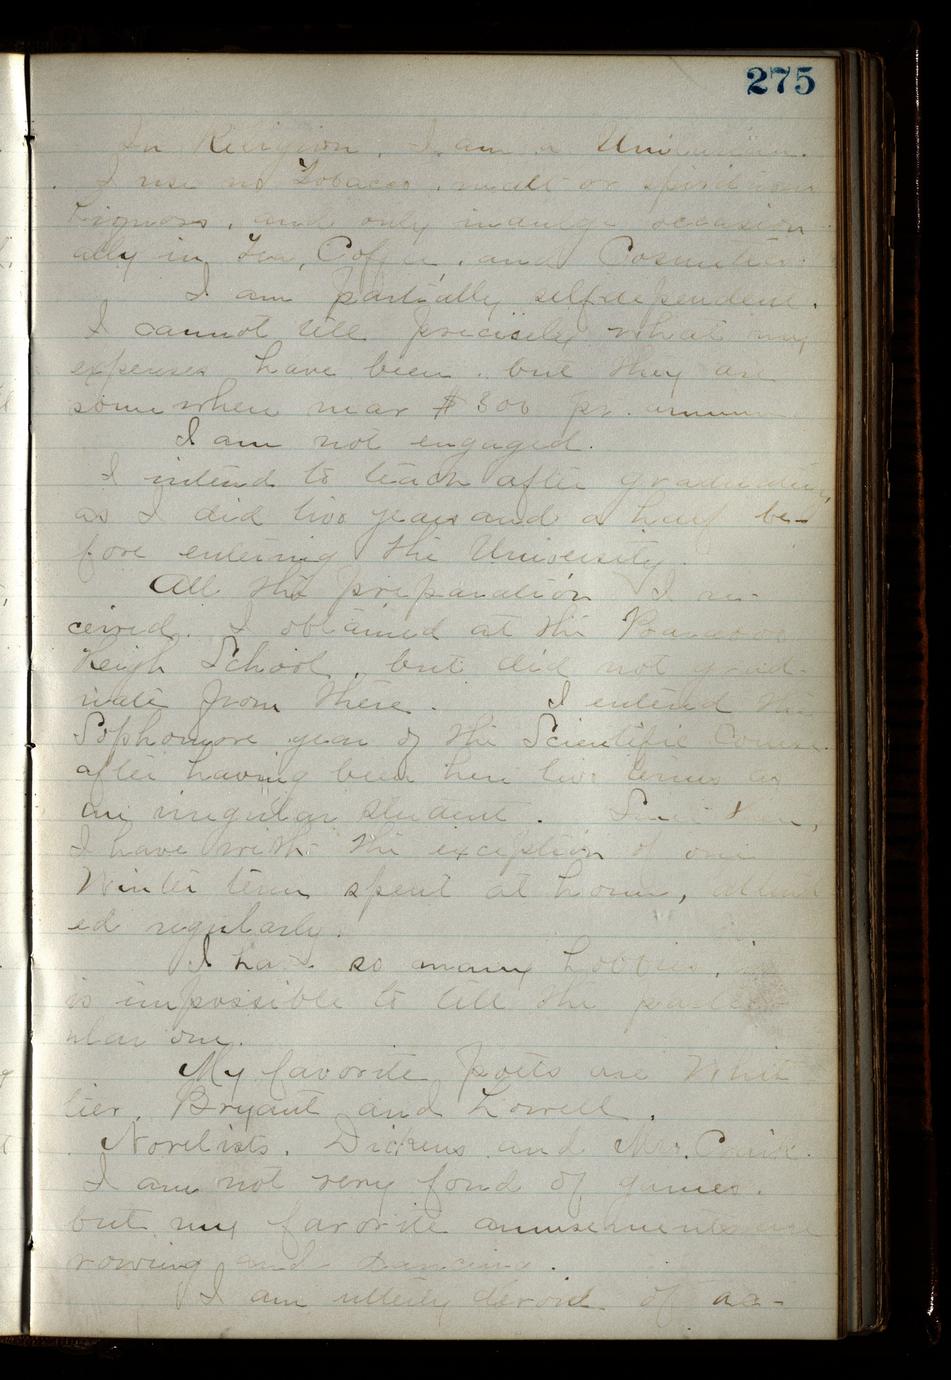 275
In Religion, I am a Unitarian.
I use no Tobacco, malt or spirituous
Liquors, and only indulge occasion
ally in Tea, Coffee, and Cosmetics.
I am partially selfdependent.
I cannot tell precisely what my
expenses have been, but they are
somewhere near $300 pr. annum
I am not engaged.
I intend to teach after graduating,
as I did two years and a half be-
fore entering the University.
All the preparation I re-
ceived, I obtained at the Baraboo
High School, but did not grad-
uate from there. I entered the
Sophomore year of the Scientific Course
after having been here two terms as
an irregular student. Since then,
I have with the exception of one
Winter term spent at home, attend
ed regularly.
I have so many hobbies, it
is impossible to tell the particu
ular one.
My favorite poets are Whit
tier, Bryant and Lowell.
Novelists, Dickens and Mrs. Craik.
I am not very fond of games,
but my favorite amusements are
rowing and dancing.
I am utterly devoid of ac-